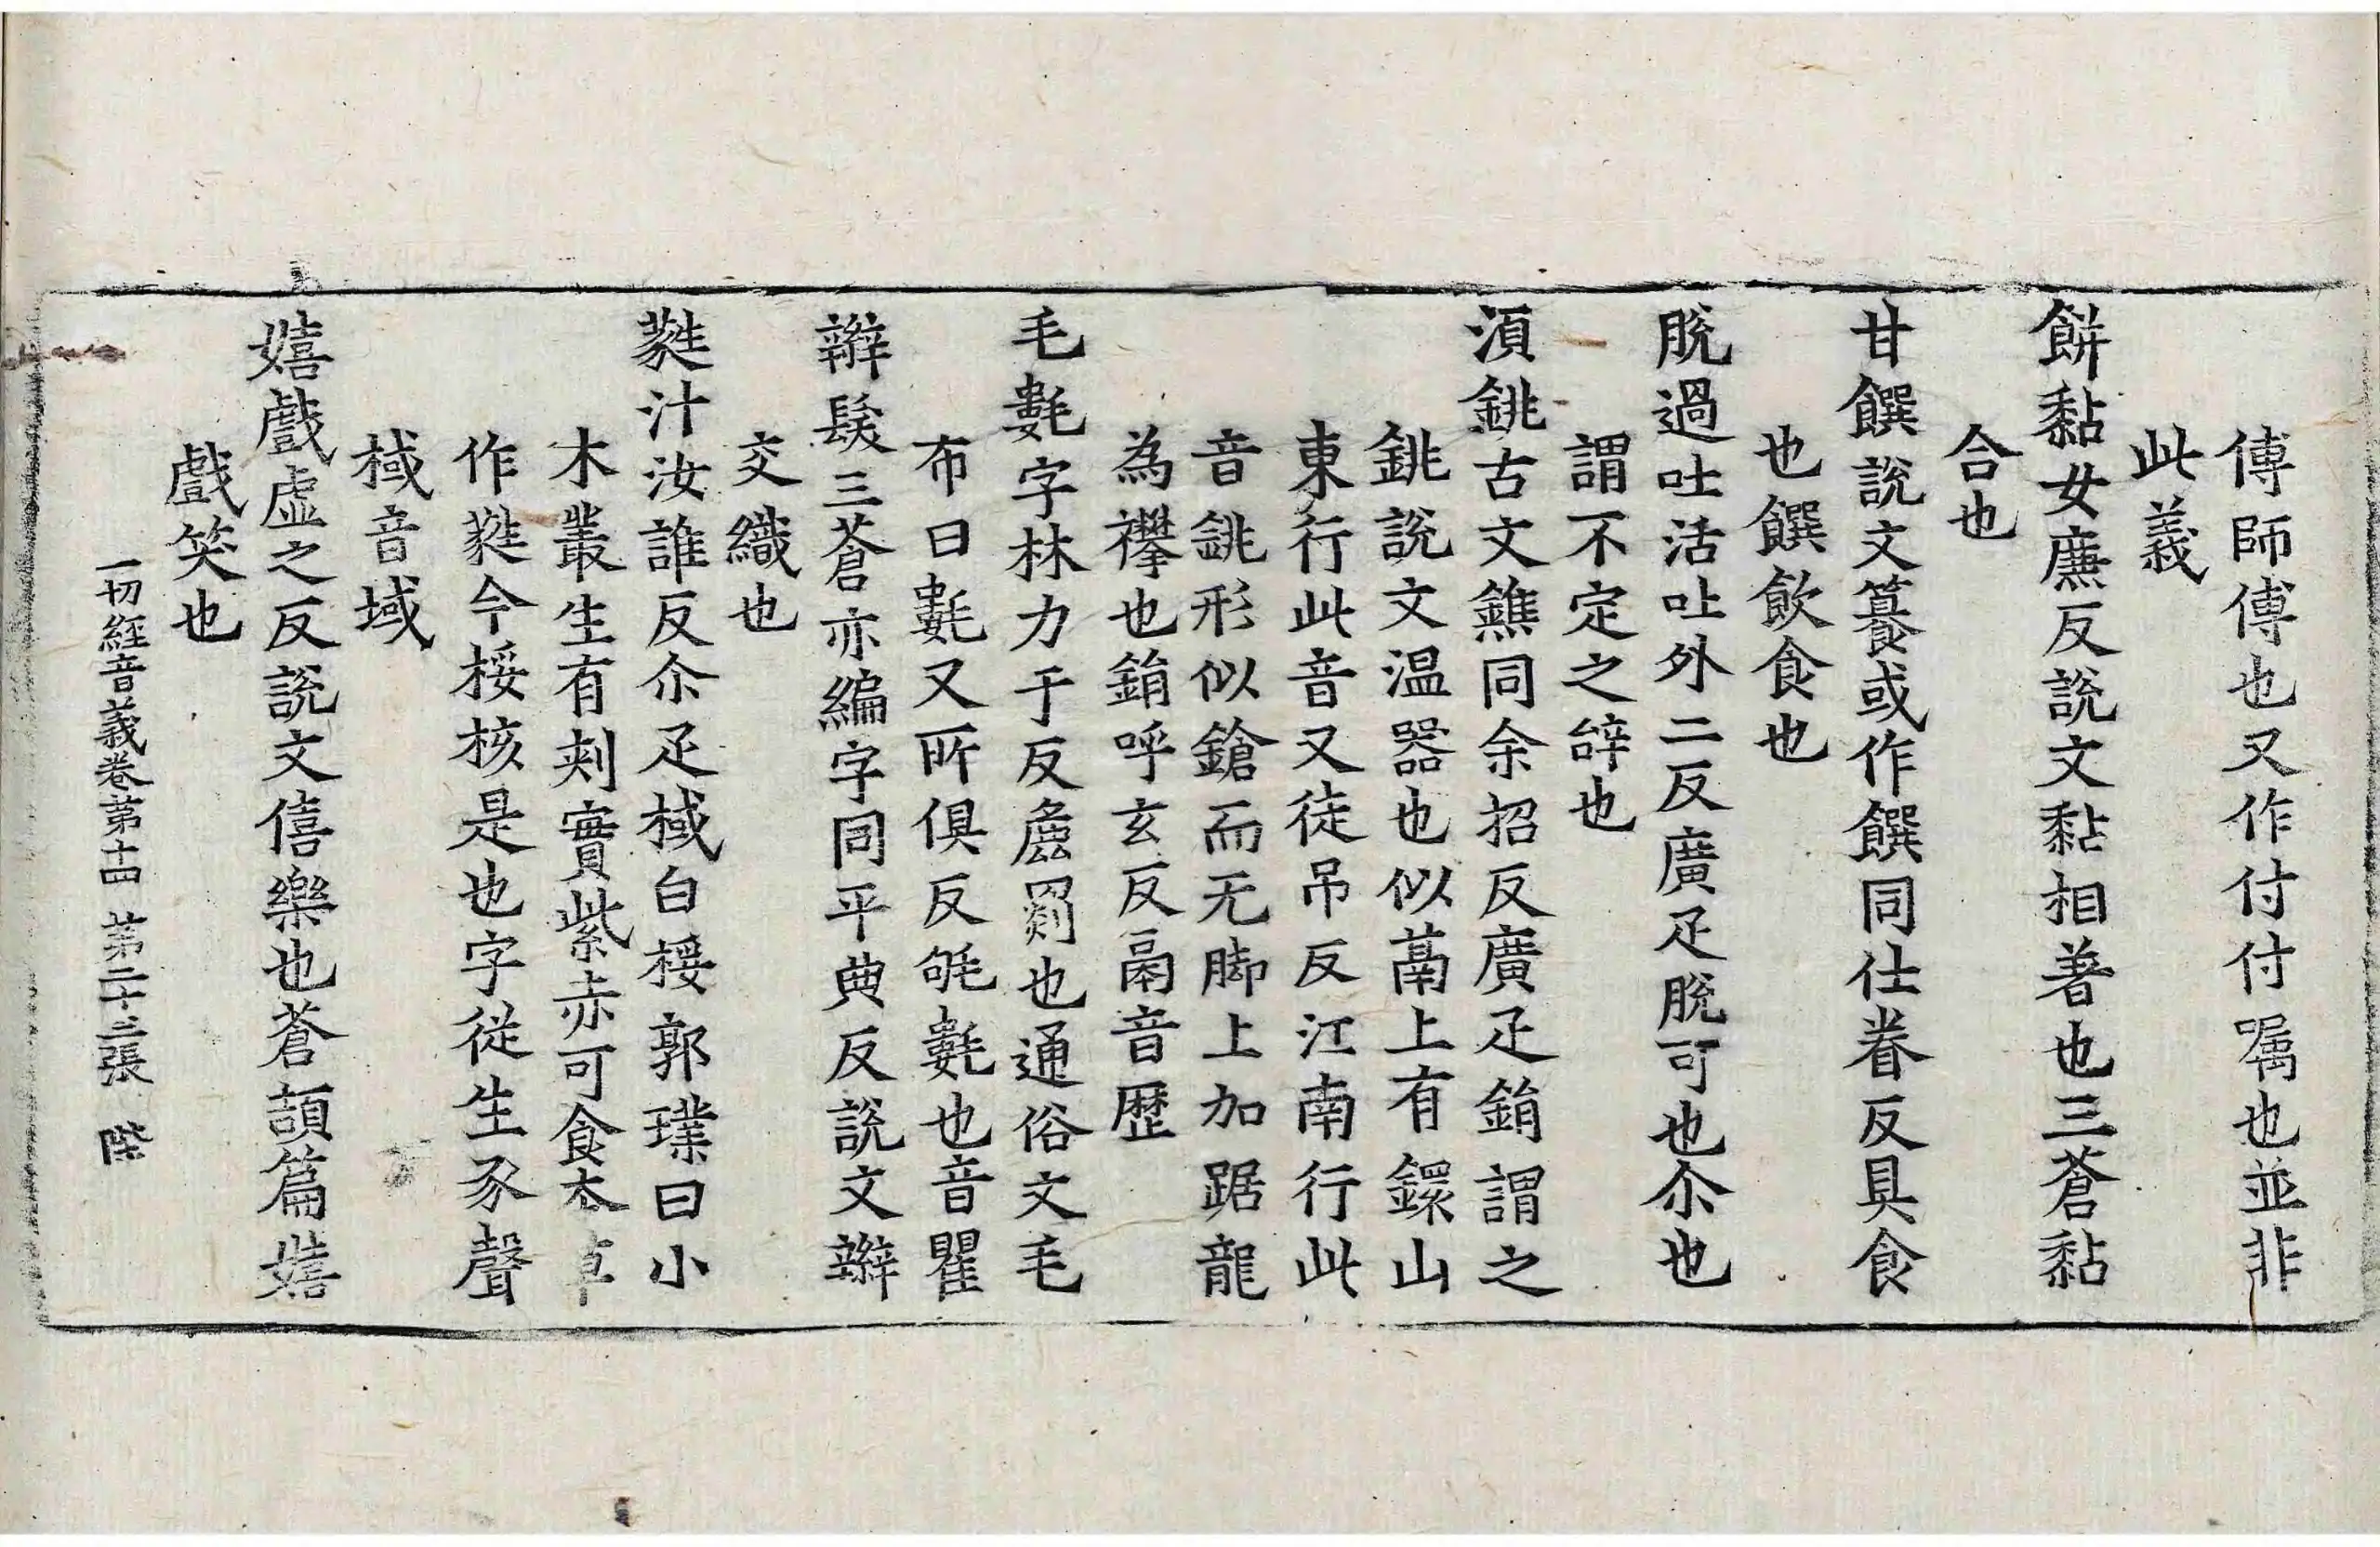 傅師傅也又作付付嘱也並非
此義
餅黏女廉反說文黏相著也三蒼黏
合也
甘饌說文籑或作饌同仕眷反具食
也饌飲食也
脫過吐活吐外二反廣疋脫可也尒也
謂不定之辝也
湏銚古文鐎同余招反廣疋鋗謂之
銚說文温器也似鬲上有鐶山
東行此音又徒吊反江南行此
音銚形似鎗而无脚上加踞龍
為襻也鋗呼玄反鬲音歷
毛氀字林力于反罽也通俗文毛
布曰氀又所俱反毹氀也音瞿
辮髮三蒼亦編字同平典反說文辮
交織也
蕤汁汝誰反尒疋棫白桵郭璞曰小
木叢生有刾實紫赤可食本草
作蕤今桵核是也字從生豕聲
棫音域
嬉戲虛之反說文僖樂也蒼頡篇嬉
戲笑也
一切經音義卷第十四 第二十三張 陛